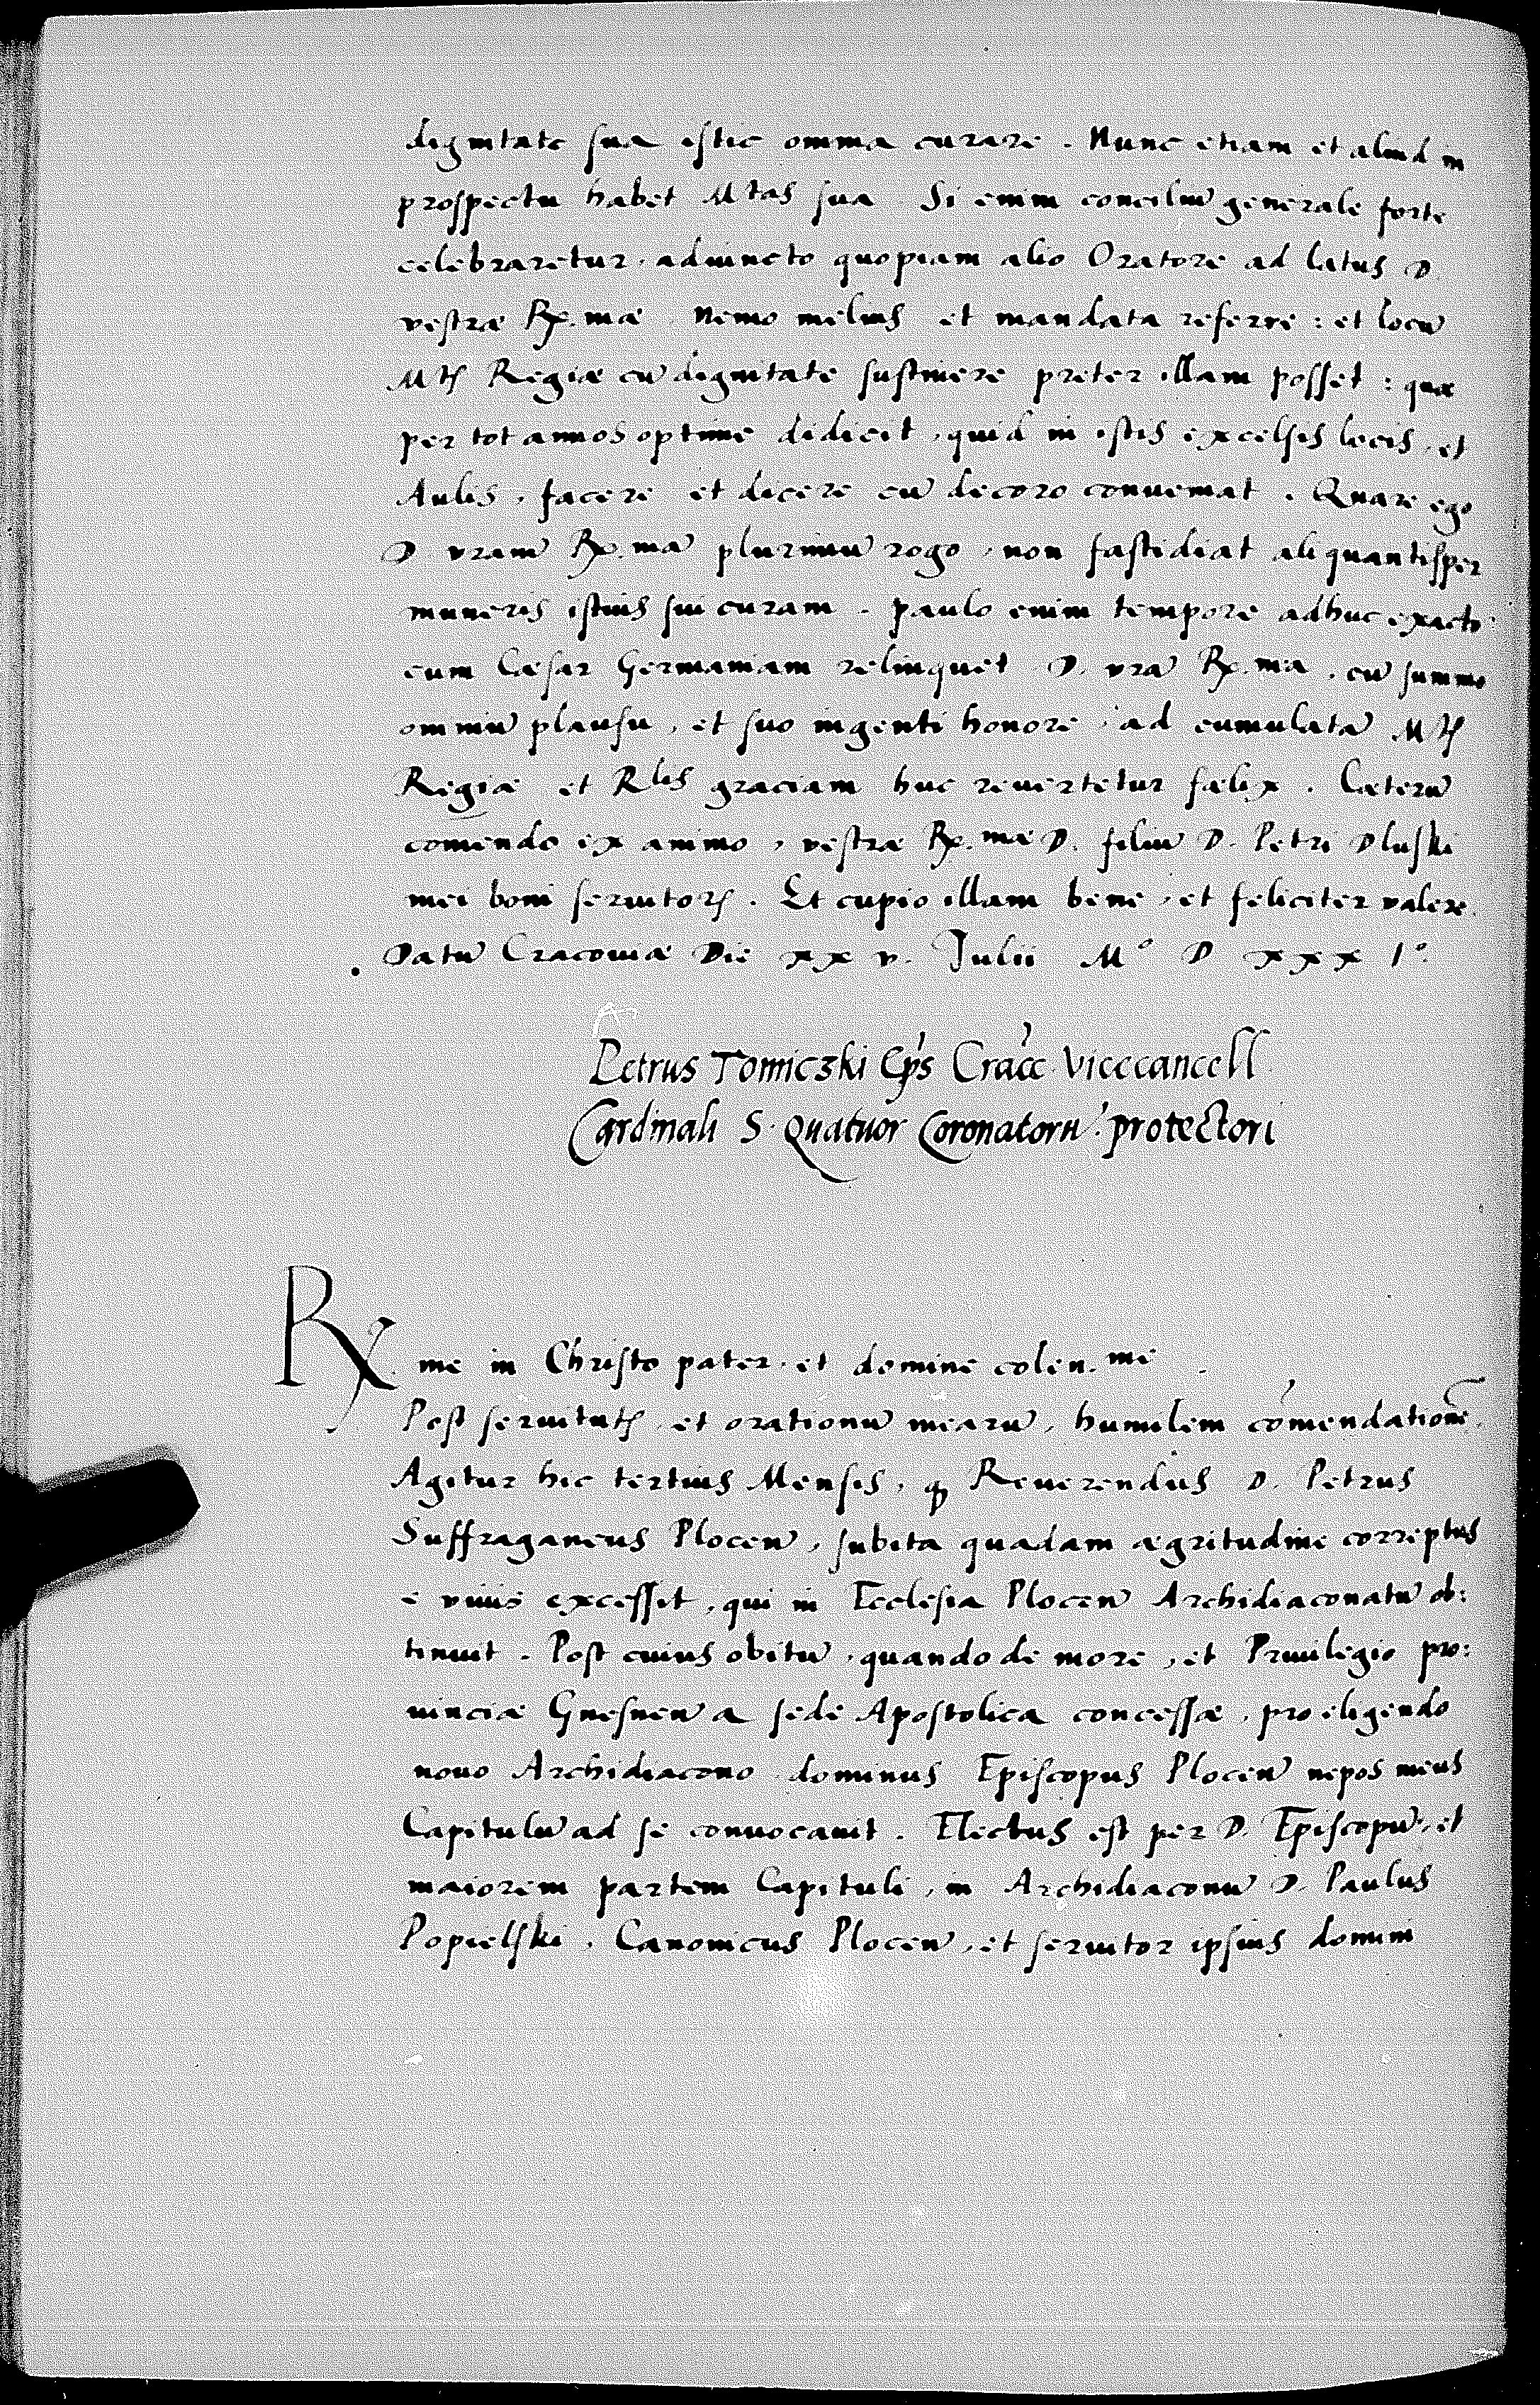 dignitate sua istic omnia curare. Nunc etiam et aliud in
prospectu habet Mtas sua Si enim conciliū generale forte
celebraretur, adiuncto quopiam alio Oratore ad latus D.
vestræ Rx.mæ nemo melius et mandata referre: et locū
Mtis Regiæ cū dignitate sustinere preter illam posset: quæ
per tot annos optime didicit, quid in istis excelsis locis, et
Aulis, facere et dicere cū decoro conueniat. Quare ego
D. vram̄ Rx.mā plurimū rogo, non fastidiat aliquantisper
muneris istius sui curam. paulo enim tempore adhuc exacto:
cum Cæsar Germaniam relinquet D. vrā Rx.ma, cū summo
omniū plausu, et suo ingenti honore, ad cumulatā Mtis
Regiæ et Rlis graciam huc reuertetur fælix. Cæterū
comendo ex animo, vestræ Rx.mæ D. filiū D. Petri Dluski
mei boni seruitoris. Et cupio illam bene, et feliciter valere.
Datū Cracouiæ Die xx v. Julii M° D xxx I°.
Petrus Tomiczki Ep̄s Cracc̄ Vicecancell
Cardinali S. Quatuor Coronatorū protectori
Rx.me in Christo pater, et domine colen.me
Post seruitutis, et orationū mearū, humilem cōmendationē.
Agitur hic tertius Mensis, qᷓ Reuerendus D. Petrus
Suffraganeus Plocen̄, subita quadam ægritudine correptus
e viuis excessit, qui in Ecclesia Plocen̄ Archidiaconatū ob:
tinuit. Post cuius obitū, quando de more, et Priuilegio pro:
uinciæ Gnesnen̄ a sede Apostolica concessæ, pro eligendo
nouo Archidiacono dominus Episcopus Plocen̄ nepos meus
Capitulū ad se conuocauit. Electus est per D. Episcopū, et
maiorem partem Capituli, in Archidiaconū D. Paulus
Popielski, Canonicus Plocen̄, et seruitor ipsius domini